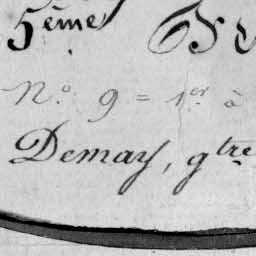 5ème
N.o 9 = 1er. à
Demay, gtre